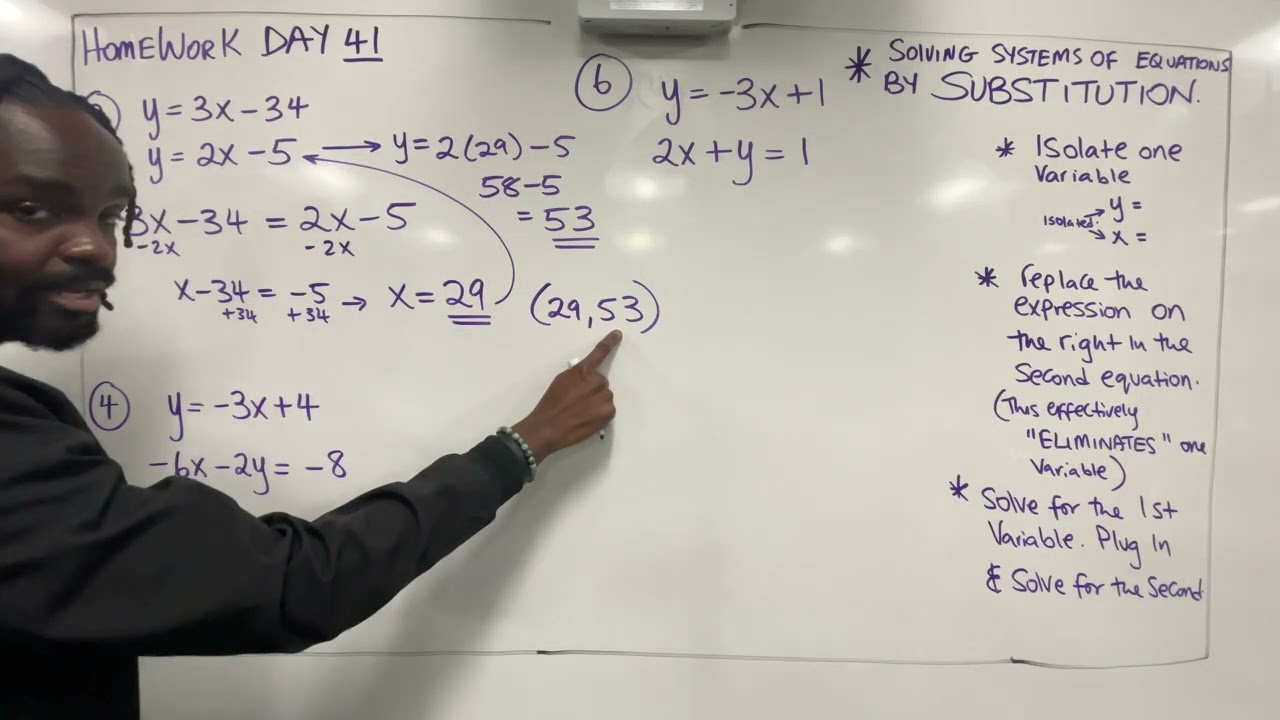 HOMEWORK DAY 41
y = 3x - 34
y = 2x - 5 → y = 2(29) - 5
58 - 5
= 53
3x - 34 = 2x - 5
-2x -2x
x - 34 = -5 → x = 29
+34 +34
(29, 53)
4 y = -3x + 4
-6x - 2y = -8
6 y = -3x + 1
2x + y = 1
* SOLVING SYSTEMS OF EQUATIONS
BY SUBSTITUTION.
* Isolate one
Variable
y =
Isolated.
x =
* replace the
expression on
the right in the
Second equation.
(This effectively
"ELIMINATES" one
Variable)
* Solve for the 1st
Variable. Plug In
& Solve for the Second